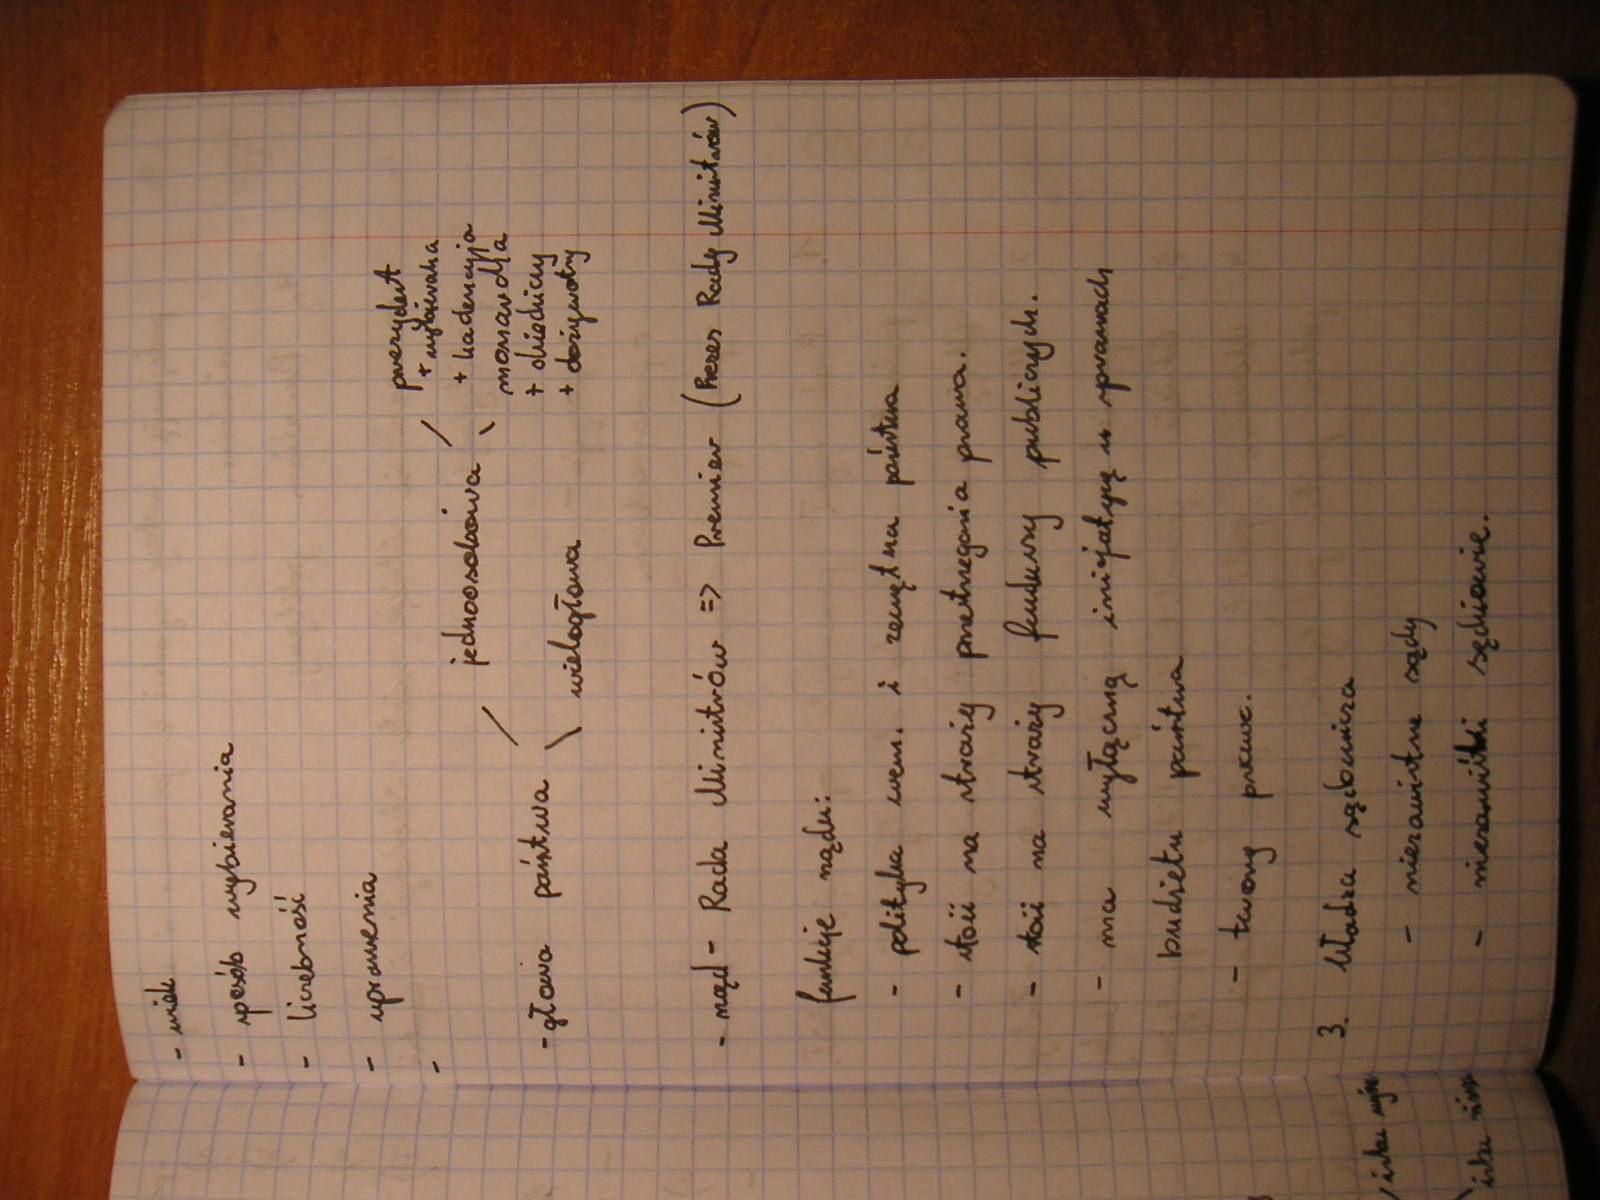 - wiek
- sposób wybierania
- liczebność
- uprawnienia
-
prezydent
+ wybierana
+ kadencyja
jednoosobowa
monarcha
+ dziedziczny
+ dożywotny
- głowa państwa
wielogłowa
- rząd - Rada Ministrów => Premier (Prezes Rady Ministrów)
funkcje rządu:
- polityka wewn. i zewnętrzna państwa
- stoii na straży przestrzegania prawa.
- stoii na straży funduszy publicznych.
- ma wyłączną inicjatywę w sprawach
budżetu państwa
- tworzy prawo.
3. Władza sądownicza
- niezawisłe sądy
- niezawiśli sędziowie.